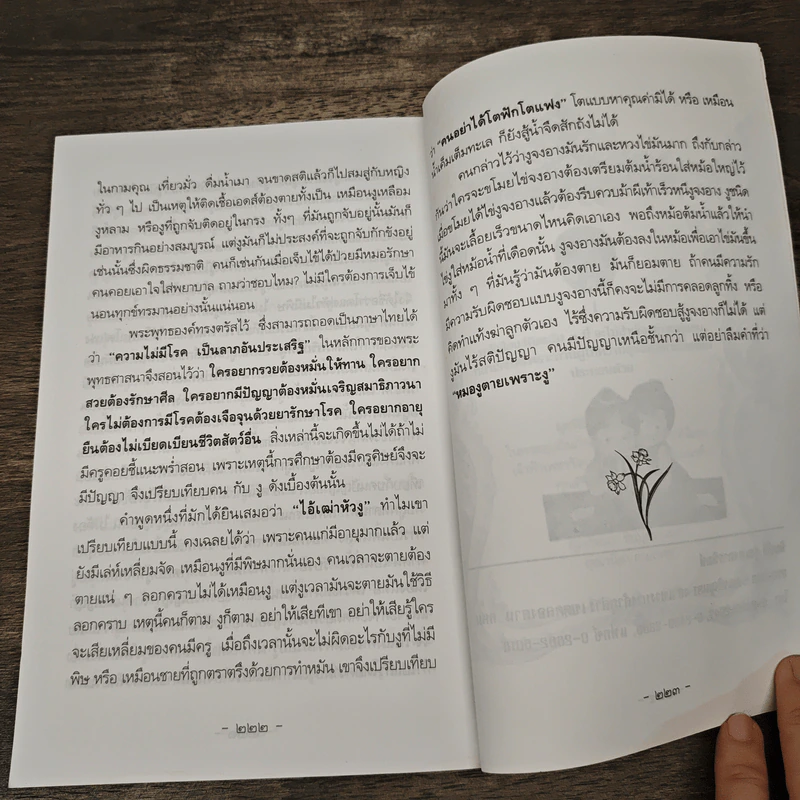 ในกามคุณ เที่ยวมั่ว ดื่มน้ำเมา จนขาดสติแล้วก็ไปสมสู่กับหญิง
ทั่ว ๆ ไป เป็นเหตุให้ติดเชื้อเอดส์ต้องตายทั้งเป็น เหมือนงูเหลือม
งูหลาม หรืองูที่ถูกจับติดอยู่ในกรง ทั้งๆ ที่มันถูกจับอยู่นั้นมันก็
มีอาหารกินอย่างสมบูรณ์ แต่งูมันก็ไม่ประสงค์ที่จะถูกจับกักขังอยู่
เช่นนั้นซึ่งผิดธรรมชาติ คนก็เช่นกันเมื่อเจ็บไข้ได้ป่วยมีหมอรักษา
คนคอยเอาใจใส่พยาบาล ถามว่าชอบไหม? ไม่มีใครต้องการเจ็บไข้
นอนทุกข์ทรมานอย่างนั้นแน่นอน
พระพุทธองค์ทรงตรัสไว้ ซึ่งสามารถถอดเป็นภาษาไทยได้
ว่า “ความไม่มีโรค เป็นลาภอันประเสริฐ” ในหลักการของพระ
พุทธศาสนาจึงสอนไว้ว่า ใครอยากรวยต้องหมั่นให้ทาน ใครอยาก
สวยต้องรักษาศีล ใครอยากมีปัญญาต้องหมั่นเจริญสมาธิภาวนา
ใครไม่ต้องการมีโรคต้องเจือจุนด้วยยารักษาโรค ใครอยากอายุ
ยืนต้องไม่เบียดเบียนชีวิตสัตว์อื่น สิ่งเหล่านี้จะเกิดขึ้นไม่ได้ถ้าไม่
มีครูคอยชี้แนะพร่ำสอน เพราะเหตุนี้การศึกษาต้องมีครูศิษย์จึงจะ
มีปัญญา จึงเปรียบเทียบคน กับ งู ดังเบื้องต้นนั้น
คำพูดหนึ่งที่มักได้ยินเสมอว่า “ไอ้เฒ่าหัวงู” ทำไมเขา
เปรียบเทียบแบบนี้ คงเฉลยได้ว่า เพราะคนแก่มีอายุมากแล้ว แต่
ยังมีเล่ห์เหลี่ยมจัด เหมือนงูที่มีพิษมากนั่นเอง คนเวลาจะตายต้อง
ตายแน่ ๆ ลอกคราบไม่ได้เหมือนงู แต่งูเวลามันจะตายมันใช้วิธี
ลอกคราบ เหตุนี้คนก็ตาม งูก็ตาม อย่าให้เสียทีเขา อย่าให้เสียรู้ใคร
จะเสียเหลี่ยมของคนมีครู เมื่อถึงเวลานั้นจะไม่ผิดอะไรกับงูที่ไม่มี
พิษ หรือ เหมือนชายที่ถูกตราตรึงด้วยการทำหมัน เขาจึงเปรียบเทียบ
- ๒๒๒ -
ว่า “คนอย่าได้โตฟักโตแฟง” โตแบบหาคุณค่ามิได้ หรือ เหมือน
น้ำเค็มเต็มทะเล ก็ยังสู้น้ำจืดสักถังไม่ได้
คนกล่าวไว้ว่างูจงอางมันรักและหวงไข่มันมาก ถึงกับกล่าว
กันว่าใครจะขโมยไข่จงอางต้องเตรียมต้มน้ำร้อนใส่หม้อใหญ่ไว้
เมื่อขโมยได้ไข่งูจงอางแล้วต้องรีบควบม้าฝีเท้าเร็วหนีงูจงอาง งูชนิด
นี้มันจะเลื้อยเร็วขนาดไหนคิดเอาเอง พอถึงหม้อต้มน้ำแล้วให้นำ
ไข่งูใส่หม้อน้ำที่เดือดนั้น งูจงอางมันต้องลงในหม้อเพื่อเอาไข่มันขึ้น
มาทั้ง ๆ ที่มันรู้ว่ามันต้องตาย มันก็ยอมตาย ถ้าคนมีความรัก
มีความรับผิดชอบแบบงูจงอางนี้ก็คงจะไม่มีการคลอดลูกทิ้ง หรือ
คิดทำแท้งฆ่าลูกตัวเอง ไร้ซึ่งความรับผิดชอบสู้งูจงอางก็ไม่ได้ แต่
งูมันไร้สติปัญญา คนมีปัญญาเหนือชั้นกว่า แต่อย่าลืมคำที่ว่า
“หมองูตายเพราะงู”
- ๒๒๓ -